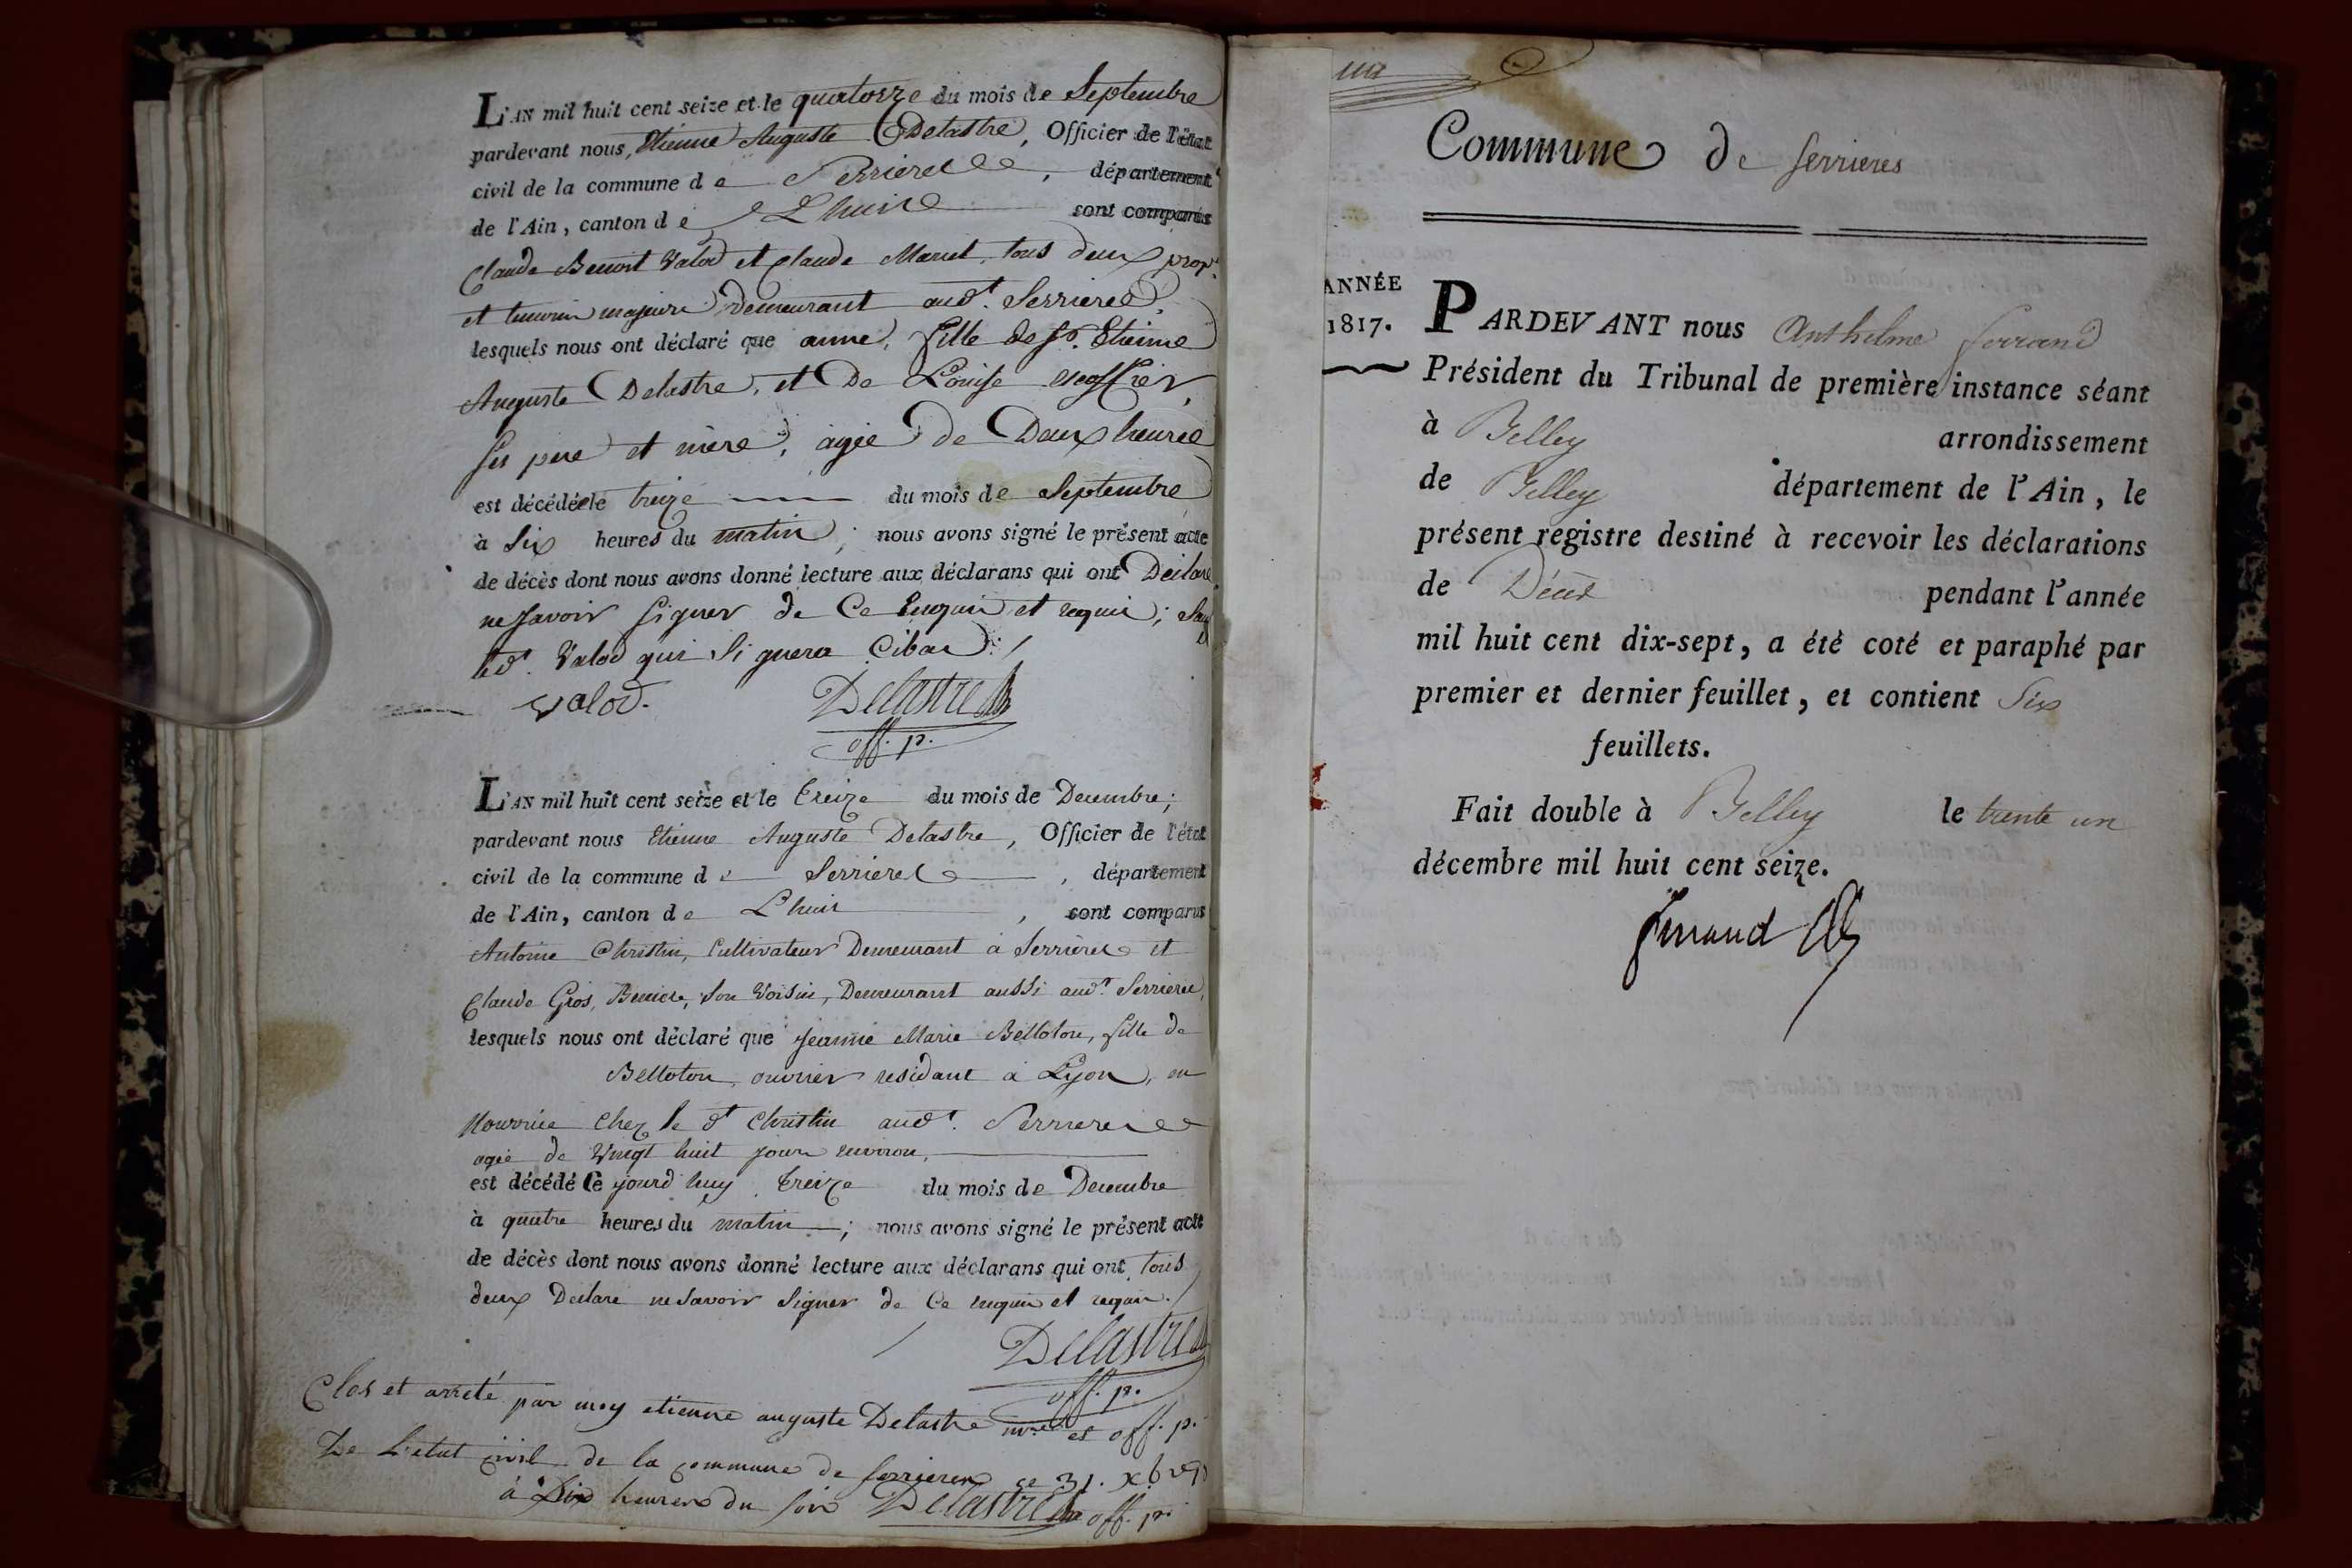 L'AN mil huit cent seize et le quatorze du mois de Septembre
pardevant nous, Etienne Auguste Delastre, Officier de l'état
civil de la commune de Serrieres, département
de l'Ain, canton de Lhuis sont comparus
Claude Benoit Valod et Claude Marcel, tous deux prop.
et temoin majeurs demeurant aud.t Serrieres,
lesquels nous ont déclaré que anne, fille de Sr. Etienne
Auguste Delastre, et De Louise escoffier,
ses pere et mère, agée de Deux heures
est décédée le treize du mois de Septembre
à Six heures du matin; nous avons signé le présent acte
de décès dont nous avons donné lecture aux déclarans qui ont Déclaré
ne savoir signer de Ce Enquis et requis; Sauf
led.t Valod qui Signera Cibas
valod.
Delastre
off. p.
L'AN mil huit cent seize et le treize du mois de Decembre;
pardevant nous Etienne Auguste Delastre, Officier de l'état
civil de la commune de Serrieres, département
de l'Ain, canton de Lhuis, sont comparus
Antoine Christin, Cultivateur Demeurant à Serrières et
Claude Gros, son Voisin, Demeurant aussi aud.t Serrieres,
lesquels nous ont déclaré que jeanne Marie Belloton, fille de
Belloton, ouvrier residant à Lyon, en
Nourrice Chez le d.t Christin aud.t Serrieres
agée de Vingt huit jours environ,
est décédé Ce jourd huy treize du mois de Decembre
à quatre heures du matin; nous avons signé le présent acte
de décès dont nous avons donné lecture aux déclarans qui ont tous
deux Declare ne Savoir Signer de Ce enquis et requis.
Delastre
off. p.
Clos et arreté par moy etienne auguste Delastre et off. p.
De L'état civil de la commune de Serrieres ce 31. xbre
à Six heures du soir Delastre off. p.
Commune de Serrieres
ANNÉE
1817.
PARDEVANT nous Anthelme ferrand
Président du Tribunal de première instance séant
à Belley arrondissement
de Belley département de l'Ain, le
présent registre destiné à recevoir les déclarations
de Décès pendant l'année
mil huit cent dix-sept, a été coté et paraphé par
premier et dernier feuillet, et contient Six
feuillets.
Fait double à Belley le trente un
décembre mil huit cent seize.